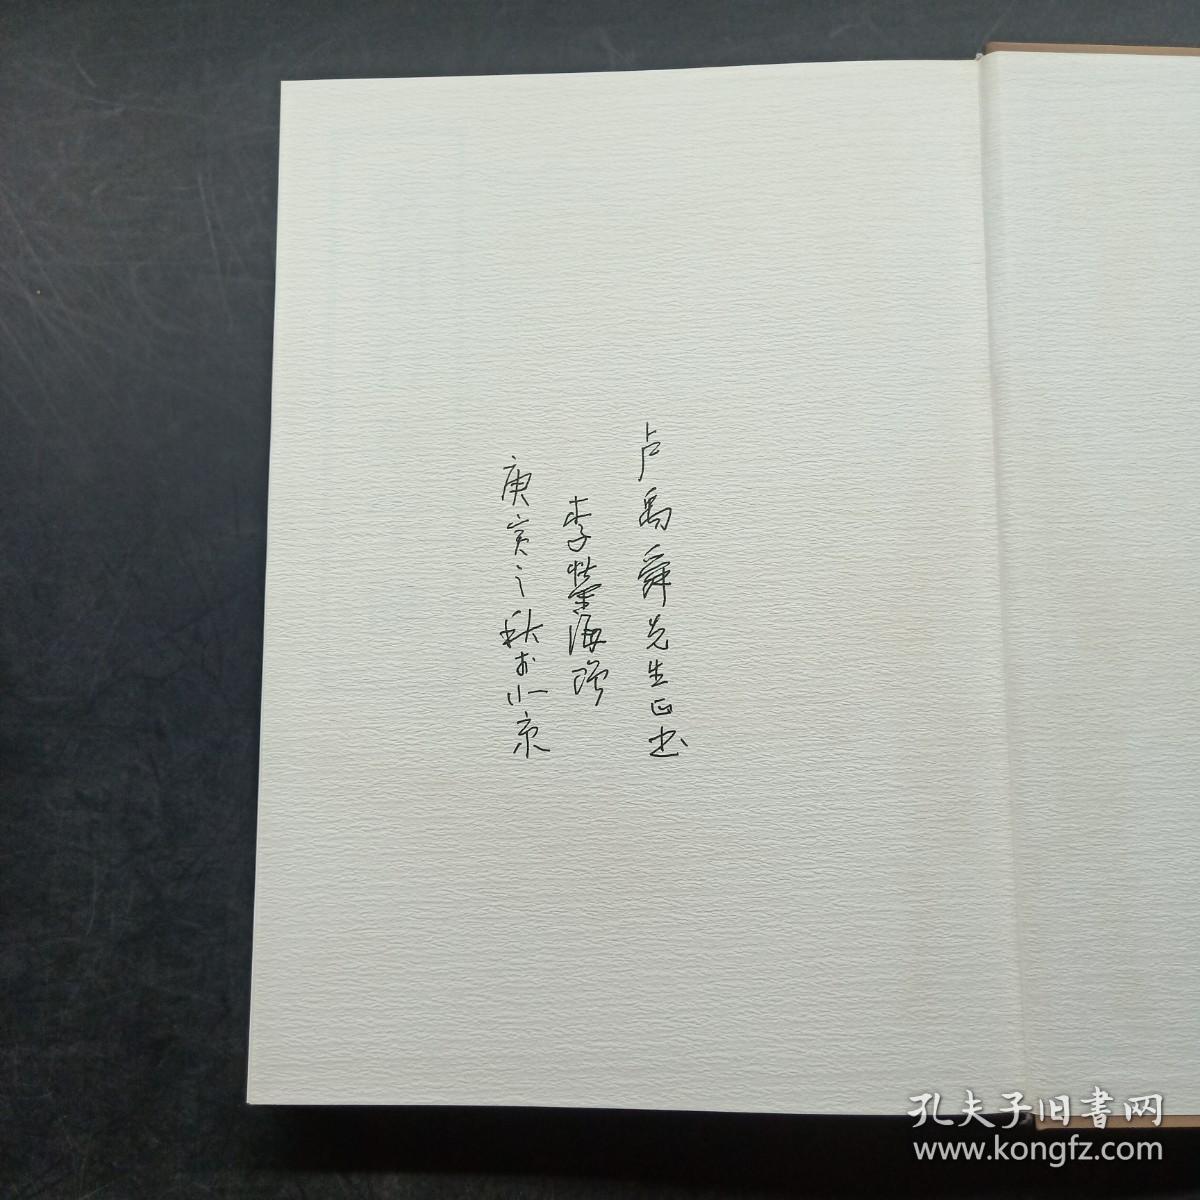 卢禹舜先生正书
李荣海赠
庚寅之秋于北京
孔夫子旧書网
www.kongfz.com